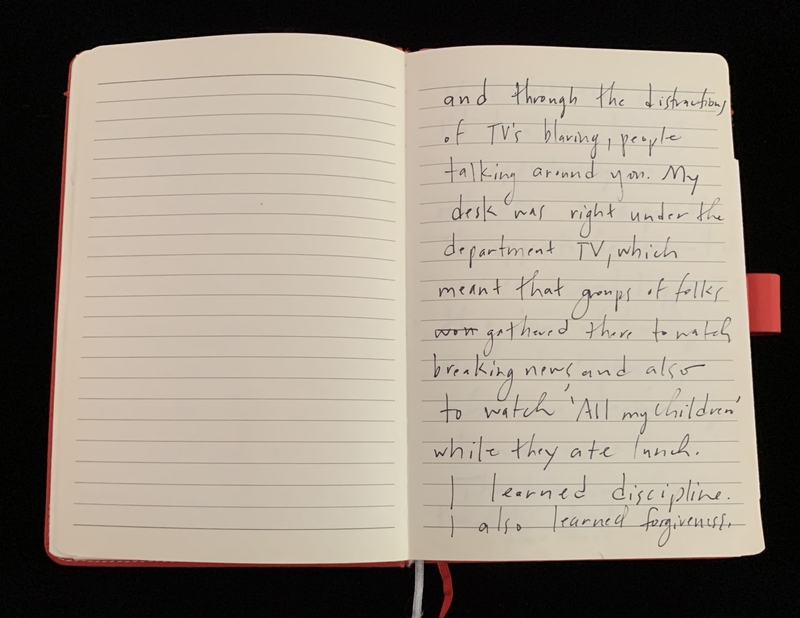 and through the distractions
of TV's blaring, people
talking around you. My
desk was right under the
department TV, which
meant that groups of folks
won gathered there to watch
breaking news, and also
to watch 'All my Children'
while they ate lunch.
I learned discipline.
I also learned forgiveness.